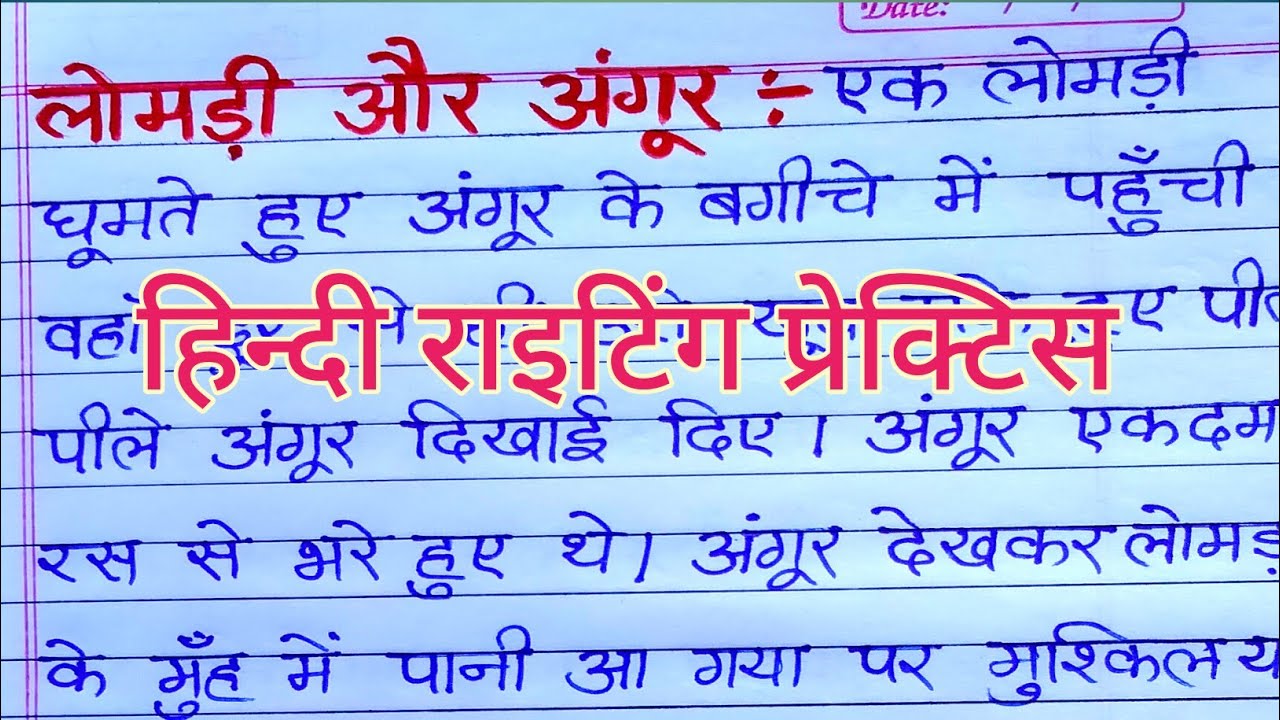 Date: / /
लोमड़ी और अंगूर ÷ एक लोमड़ी
घूमते हुए अंगूर के बगीचे में पहुँची
वहां
हिन्दी राइटिंग प्रेक्टिस
पीले अंगूर दिखाई दिए। अंगूर एकदम
रस से भरे हुए थे। अंगूर देखकर लोमड़
के मुँह में पानी आ गया पर मुश्किल य